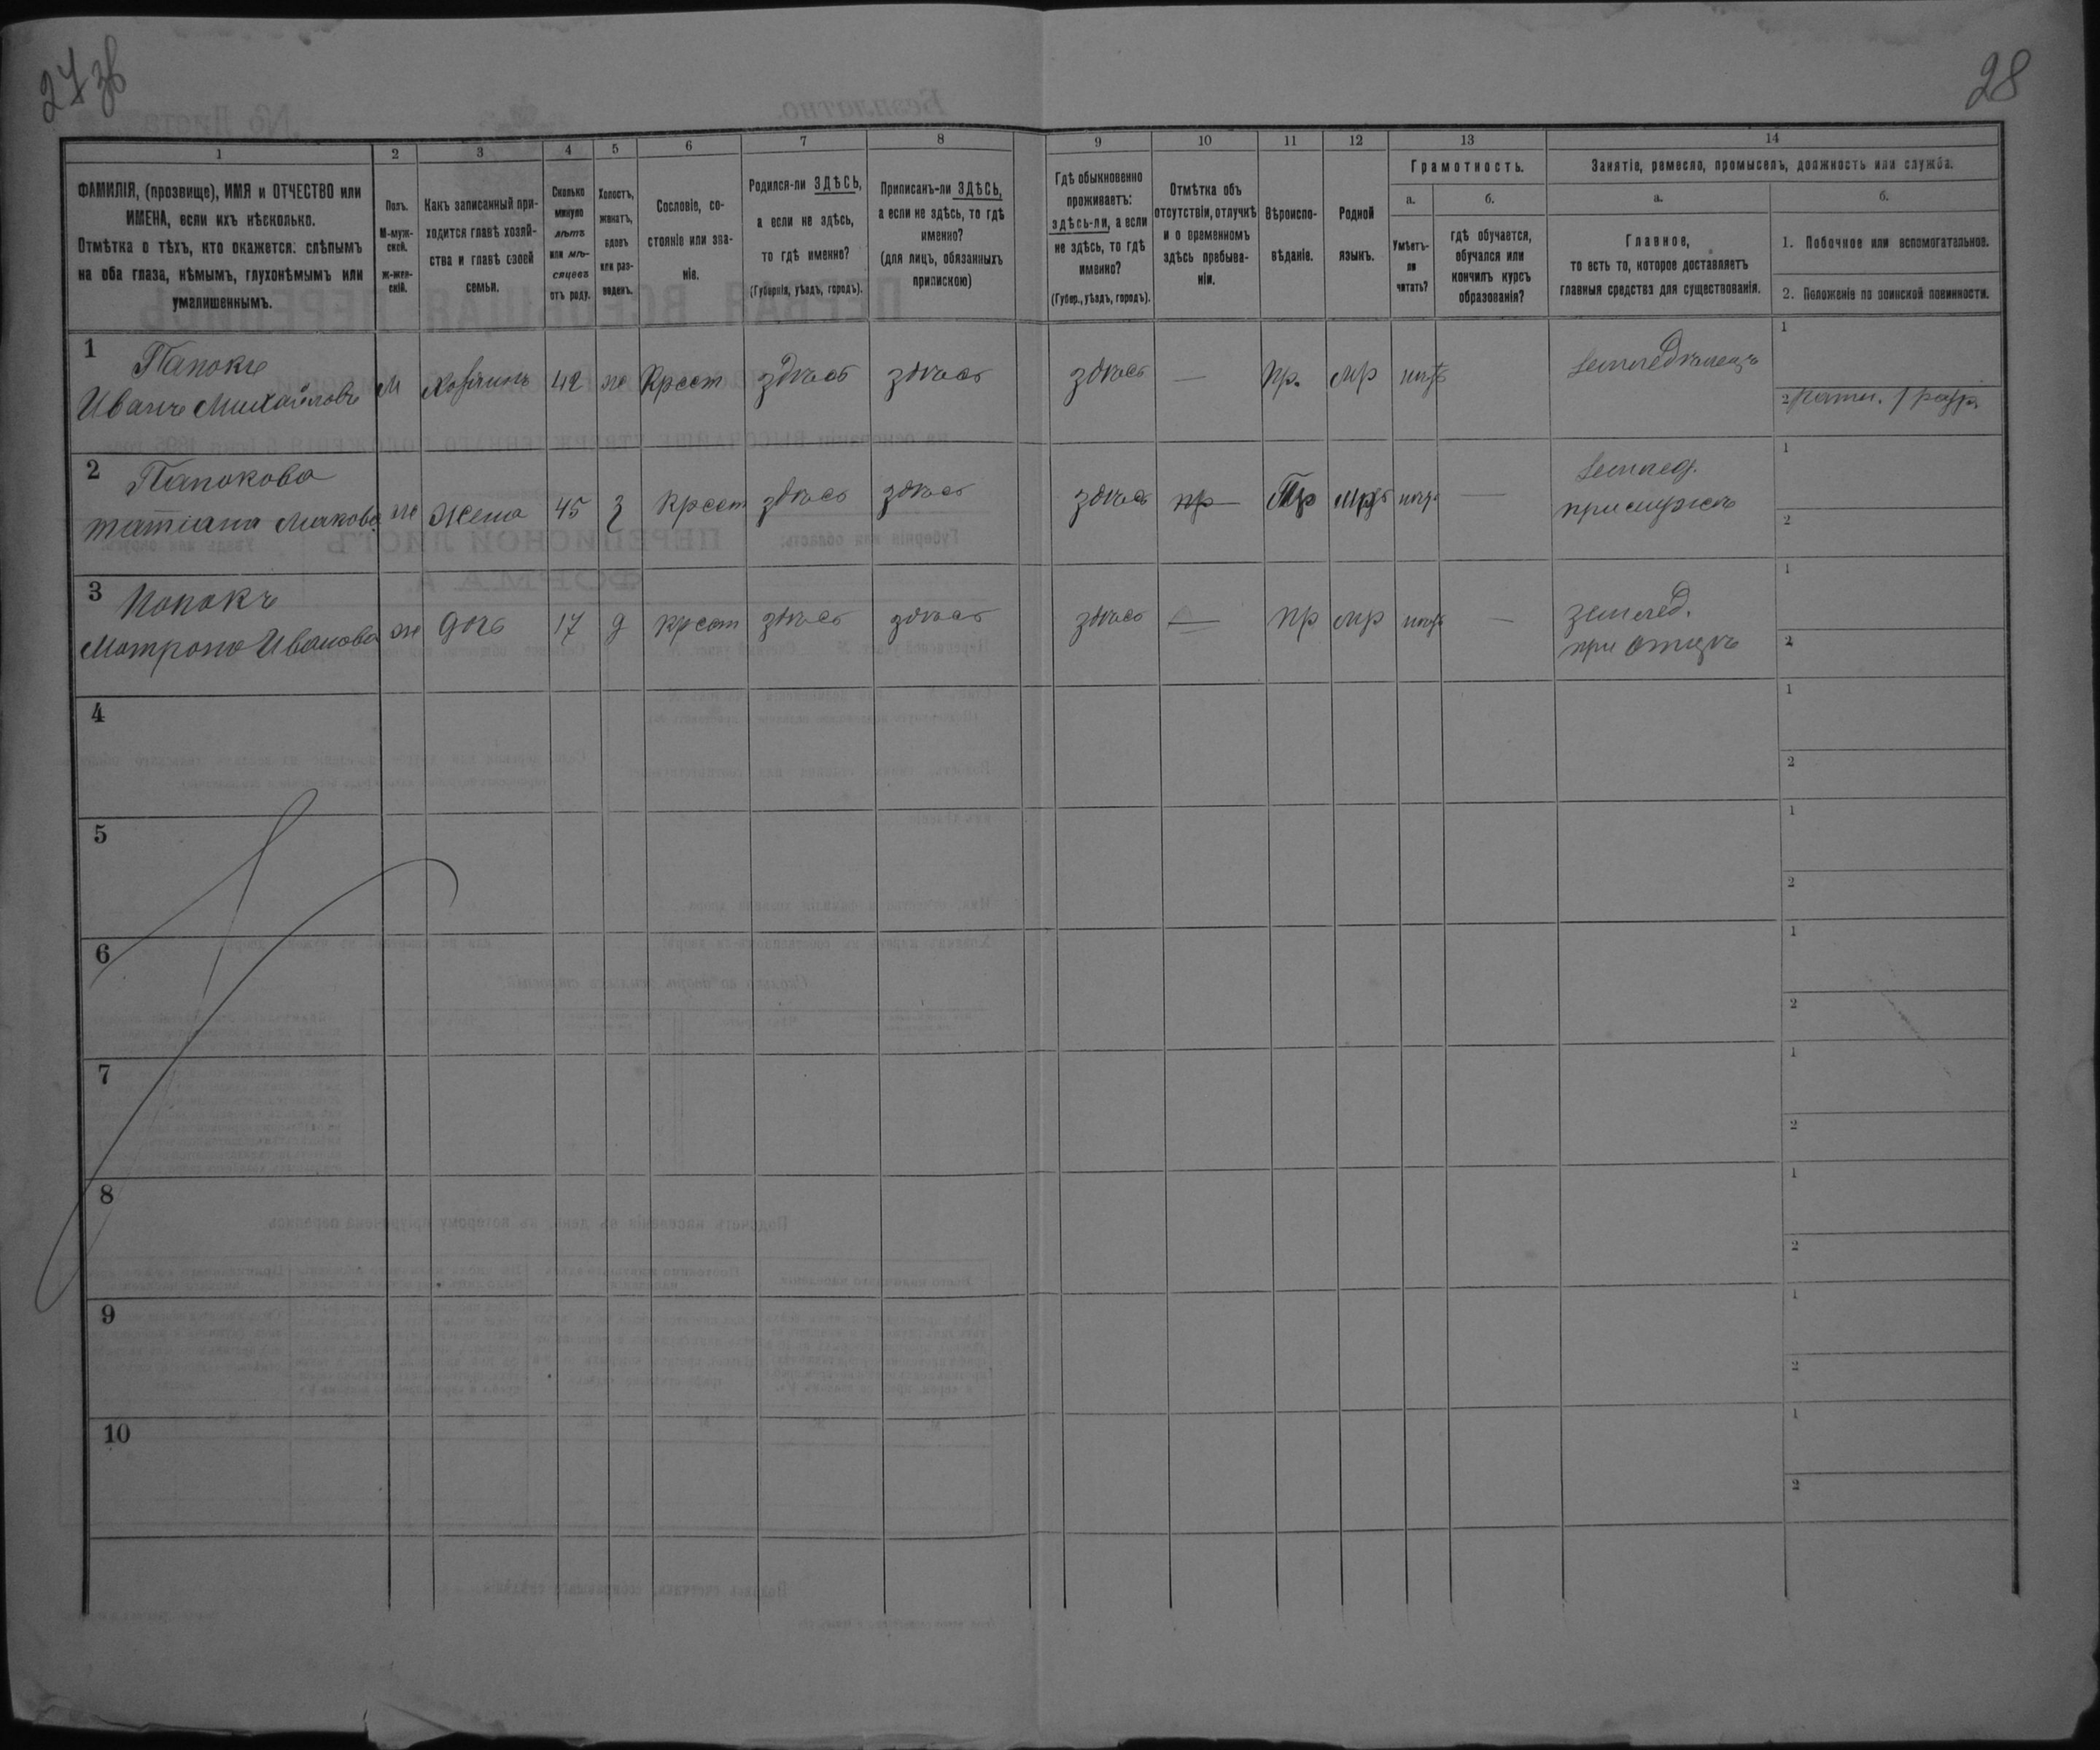 27 зв
28
1 2 3 4 5 6 7 8 9 10 11 12 13 14
ФАМИЛІЯ, (прозвище), ИМЯ и ОТЧЕСТВО или
ИМЕНА, если ихъ нѣсколько.
Отмѣтка о тѣхъ, кто окажется: слѣпымъ
на оба глаза, нѣмымъ, глухонѣмымъ или
умалишеннымъ.
Полъ.
М-муж-
ской.
Ж-жен-
скій.
Какъ записанный при-
ходится главѣ хозяй-
ства и главѣ своей
семьи.
Сколько
минуло
лѣтъ
или мѣ-
сяцевъ
отъ роду.
Холостъ,
женатъ,
вдовъ
или раз-
веденъ.
Сословіе, со-
стояніе или зва-
ніе.
Родился-ли ЗДѢСЬ,
а если не здѣсь,
то гдѣ именно?
(Губернія, уѣздъ, городъ).
Приписанъ-ли ЗДѢСЬ,
а если не здѣсь, то гдѣ
именно?
(для лицъ, обязанныхъ
припискою)
Гдѣ обыкновенно
проживаетъ:
здѣсь-ли, а если
не здѣсь, то гдѣ
именно?
(Губер., уѣздъ, городъ).
Отмѣтка объ
отсутствіи, отлучкѣ
и о временномъ
здѣсь пребыва-
ніи.
Вѣроиспо-
вѣданіе.
Родной
языкъ.
Грамотность.
а.
Умѣетъ-
ли
читать?
б.
гдѣ обучается,
обучался или
кончилъ курсъ
образованія?
Занятіе, ремесло, промыселъ, должность или служба.
а.
Главное,
то есть то, которое доставляетъ
главныя средства для существованія.
б.
1. Побочное или вспомогательное.
2. Положеніе по воинской повинности.
1 Папокъ
Иванъ Михайловъ М Хозяинъ 42 ж Крест здѣсь здѣсь здѣсь — пр. мр нѣтъ земледѣлецъ
1
2 Ратн. 1 разр.
2 Папокова
Татіана ж Жена 45 з крест здѣсь здѣсь здѣсь пр Пр мр нѣтъ — землед.
при мужѣ
1
2
3 Попокъ
Матрона Иванова ж дочь 17 д крест здѣсь здѣсь здѣсь — пр мр нѣтъ — землед.
при отцѣ
1
2
4 1
2
5 1
2
6 1
2
7 1
2
8 1
2
9 1
2
10 1
2